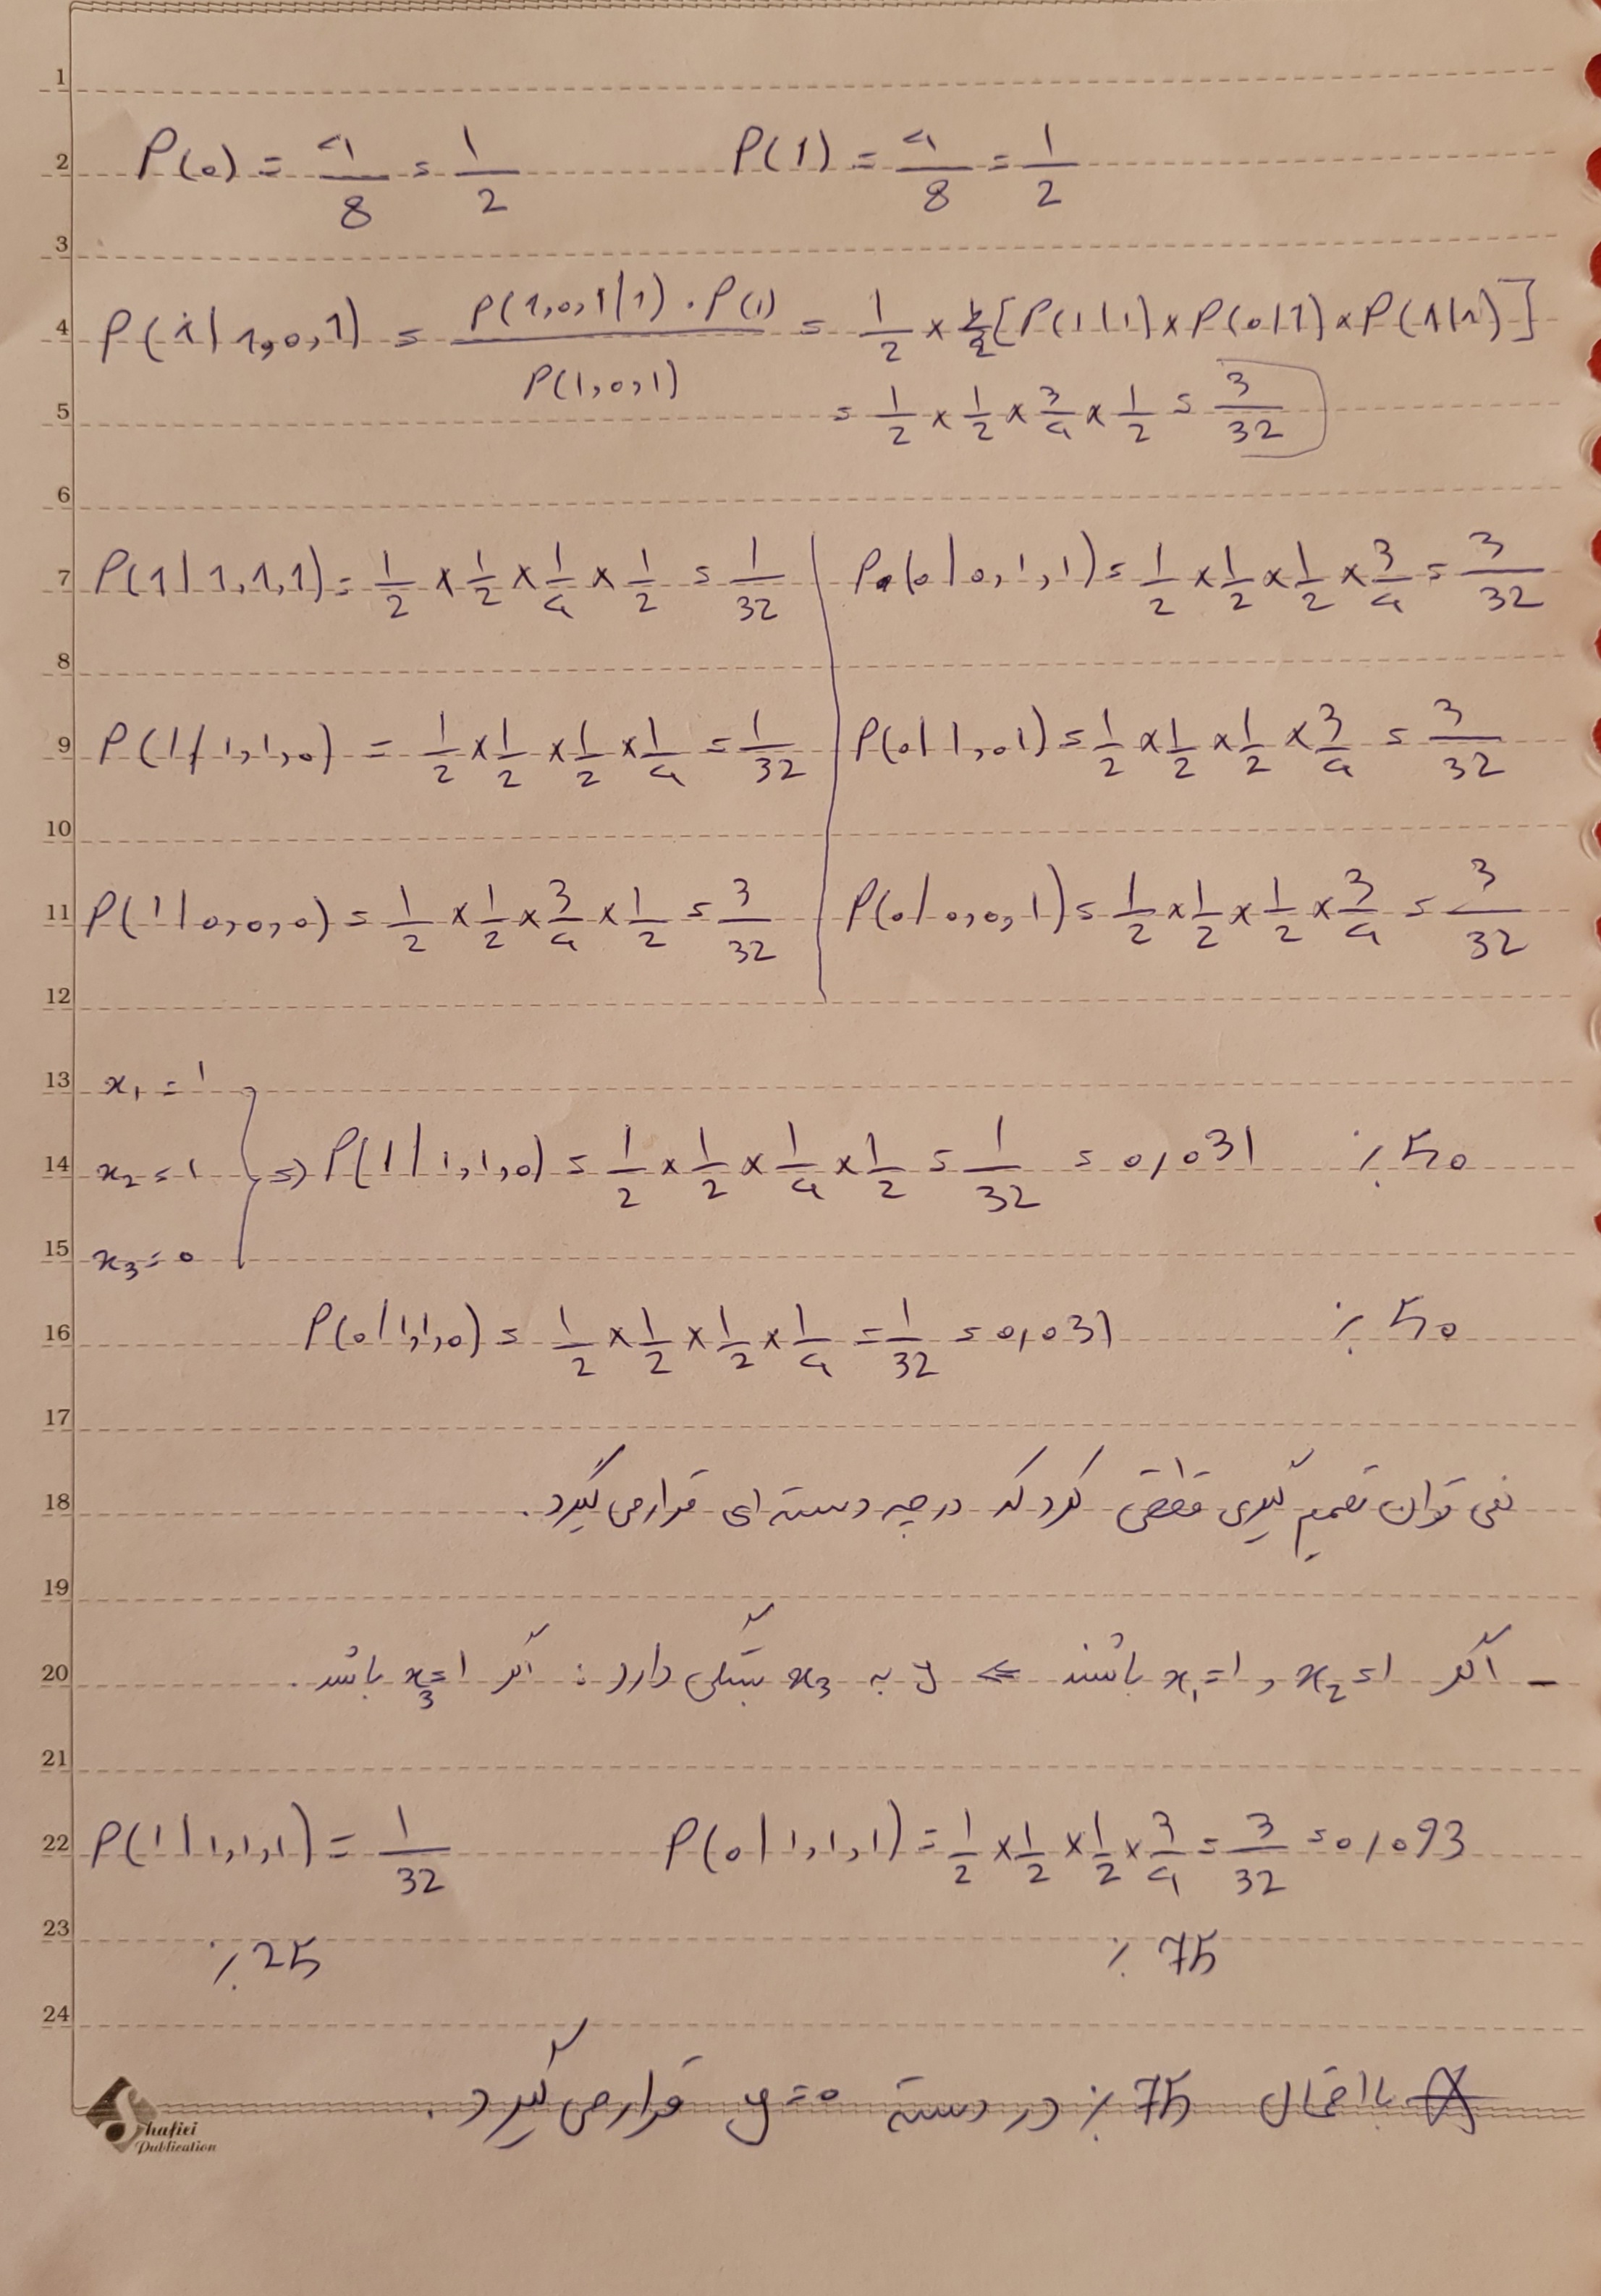 1
2
P(0) = 4/8 = 1/2    P(1) = 4/8 = 1/2
3
4
P(1|1,0,1) = P(1,0,1|1) . P(1) / P(1,0,1) = 1/2 × [P(1|1) × P(0|1) × P(1|1)]
5
= 1/2 × 1/2 × 3/4 × 1/2 = 3/32
6
7
P(1|1,1,1) = 1/2 × 1/2 × 1/4 × 1/2 = 1/32    P(0|0,1,1) = 1/2 × 1/2 × 1/2 × 3/4 = 3/32
8
9
P(1|1,1,0) = 1/2 × 1/2 × 1/2 × 1/4 = 1/32    P(0|1,01) = 1/2 × 1/2 × 1/2 × 3/4 = 3/32
10
11
P(1|0,0,0) = 1/2 × 1/2 × 3/4 × 1/2 = 3/32    P(0|0,0,1) = 1/2 × 1/2 × 1/2 × 3/4 = 3/32
12
13
x₁ = 1
14
x₂ = 1 => P(1|1,1,0) = 1/2 × 1/2 × 1/4 × 1/2 = 1/32 = 0,031    % 50
15
x₃ = 0
16
P(0|1,1,0) = 1/2 × 1/2 × 1/2 × 1/4 = 1/32 = 0,031    % 50
17
18
نمی توان تصمیم گیری قطعی کرد که در چه دسته ای قرار می گیرد.
19
20
- اگر x₂=1 و x₁=1 باشند <= y به x₃ بستگی دارد : اگر x₃=1 باشد.
21
22
P(1|1,1,1) = 1/32    P(0|1,1,1) = 1/2 × 1/2 × 1/2 × 3/4 = 3/32 = 0,093
23
% 25    % 75
24
با احتمال 75 % در دسته y=0 قرار می گیرد.
Shafiei
Publication